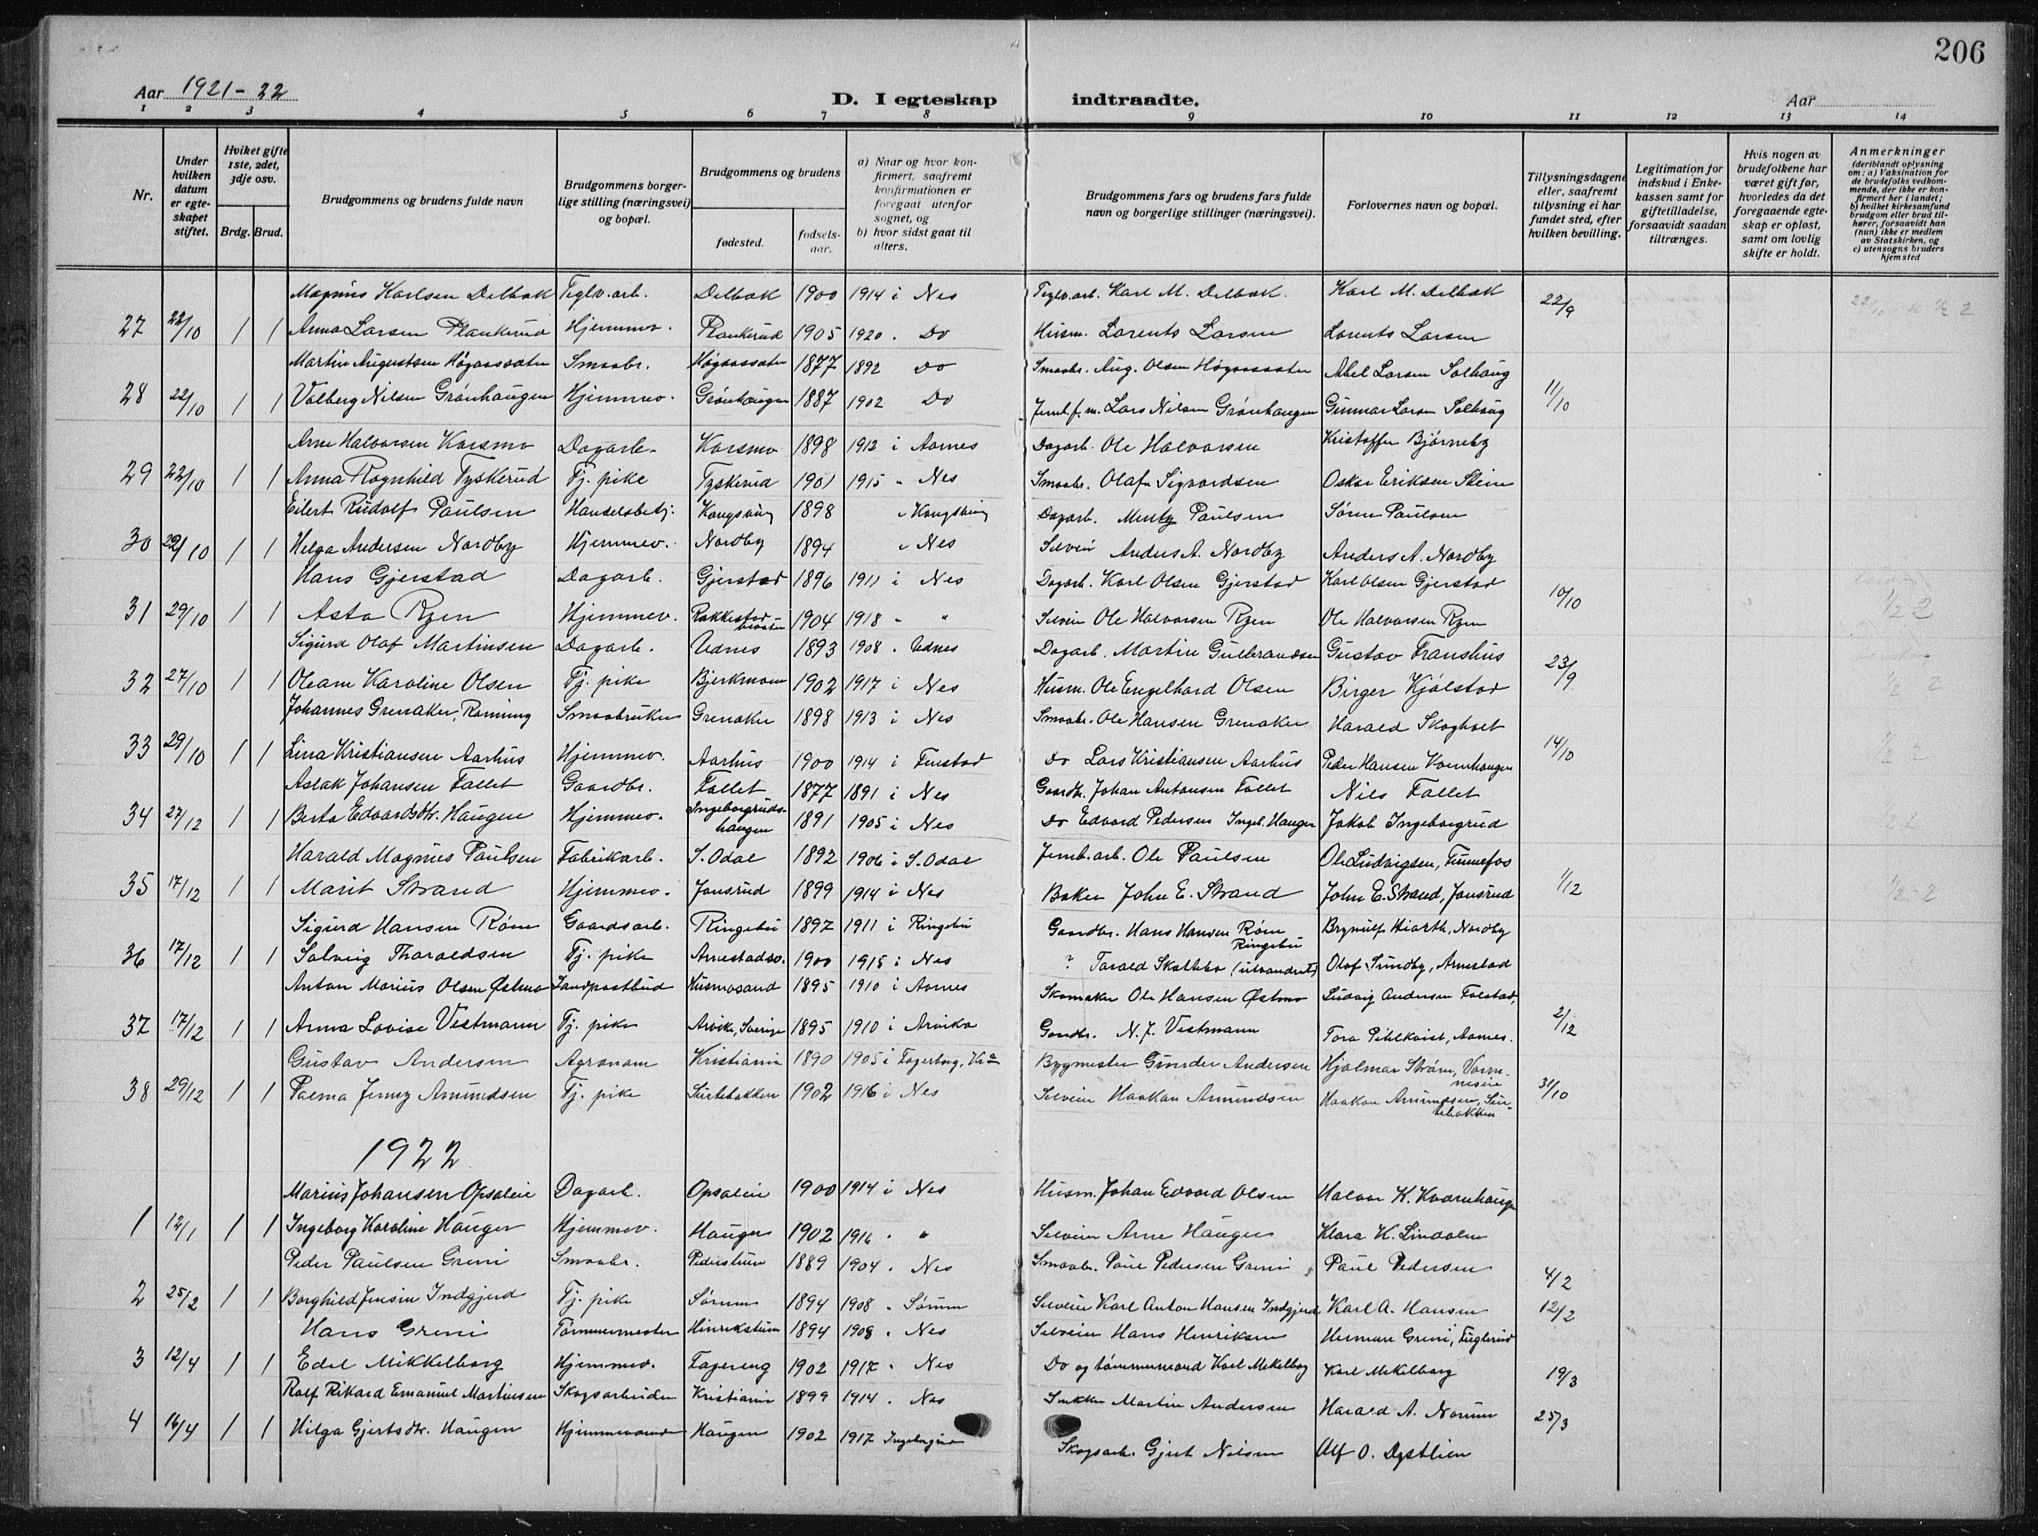 206
Aar 1921-22 D. I egteskap indtraadte. Aar
1 2 3 4 5 6 7 8 9 10 11 12 13 14
Nr. Under hvilken datum er egteskapet stiftet. Hviket gifte 1ste, 2det, 3dje osv. Brdg. Brud. Brudgommens og brudens fulde navn Brudgommens borgerlige stilling (næringsvei) og bopæl. Brudgommens og brudens fødested. fødselsaar. a) Naar og hvor konfirmert, saafremt konfirmationen er foregaat utenfor sognet, og b) hvor sidst gaat til alters. Brudgommens fars og brudens fars fulde navn og borgerlige stillinger (næringsvei). Forlovernes navn og bopæl. Tillysningsdagene eller, saafremt tillysning ei har fundet sted, efter hvilken bevilling. Legitimation for indskud i Enkekassen samt for giftetilladelse, forsaavidt saadan tiltrænges. Hvis nogen av brudefolkene har været gift før, hvorledes da det foregaaende egteskap er opløst, samt om lovlig skifte er holdt. Anmerkninger (deriblandt oplysning om: a) Vaksination for de brudefolks vedkommende, der ikke er konfirmert her i landet; b) hvilket kirkesamfund brudgom eller brud tilhører, forsaavidt han (hun) ikke er medlem av Statskirken, og c) utensogns bruders hjemsted
Magnus Karlsen Delbak Teglv.arb. Delbak 1900 1914 i Nes Teglv.arb. Karl M. Delbak. Karl M. Delbak 22/9
27 22/10 1 1 Anna Larsen Plankerud Hjemmev. Plankerud 1905 1920 . Do Husm. Lorents Larsen Lorents Larsen
Martin Augustsen Høgaassæter Smaabr. Høgaassæter 1877 1892 Do Smaabr. Aug. Olsen Høgaassæter Abel Larsen Solhaug
28 22/10 1 1 Valberg Nilsen Grønhaugen Hjemmev. Grønhaugen 1887 1902 Do Jernb.f.m. Lars Nilsen Grønhaugen Gunnar Larsen Solhaug 11/10
Arne Halvorsen Korsmo Dagarb. Korsmo 1898 1912 i Aarnes Dagarb. Ole Halvorsen Kristoffer Bjørneby
29 22/10 1 1 Anna Ragnhild Tyskerud Tj. pike Tyskerud 1901 1915 " Nes Smaabr. Olaf Sigvardsen Oskar Eriksen Stein
Eilert Rudolf Paulsen Handelsbetj. Kongsving 1898 " Kongsving Dagarb. Mentz Paulsen Søren Paulsen
30 29/10 1 1 Helga Andersen Nordby Hjemmev. Nordby 1894 " Nes Selveir Anders A. Nordby Anders A. Nordby
Hans Gjerstad Dagarb. Gjerstad 1896 1911 i Nes Dagarb. Karl Olsen Gjerstad Karl Olsen Gjerstad
31 29/10 1 1 Asta Ryen Hjemmev. Rakkestad 1904 1918 " " Selveier Ole Halvorsen Ryen Ole Halvorsen Ryen 10/10
Sigurd Olaf Martinsen Dagarb. Udnes 1893 1908 . Udnes Dagarb. Martin Gulbrandsen Gustav Franshus
32 27/10 1 1 Oleam Karoline Olsen Tj. pike Bjerkmoen 1902 1917 i Nes Husm. Ole Engelhard Olsen Birger Kjølstad 23/9
Johannes Grenaker, Roming Smaabruker Grenaker 1898 1913 i Nes Smaabr. Ole Hansen Grenaker Harald Skogholt
33 29/10 1 1 Lina Kristiansen Aarhus Hjemmev. Aarhus 1900 1914 i Fenstad Do Lars Kristiansen Aarhus Peder Hansen Kvernhaugen 14/10
Aslak Johansen Fallet Gaardbr. Fallet 1877 1891 i Nes Gaardbr. Johan Antonsen Fallet Nils Fallet
34 27/12 1 1 Berta Edvardsdtr. Haugen Hjemmev. Ingeborgrudshaugen 1891 1905 i Nes Do Edvard Pedersen Ingeb. Haugen Jakob Ingeborgrud
Harald Magnus Paulsen Fabrikarb. S. Odal 1892 1906 i S. Odal Jernb.arb. Ole Paulsen Ole Ludvigsen, Funnefos
35 17/12 1 1 Marit Strand Hjemmev. Jonsrud 1899 1914 i Nes Baker John E. Strand John E. Strand, Jonsrud 1/12
Sigurd Hansen Røm Gaardsarb. Ringebu 1897 1911 i Ringebu Gaardbr. Hans Hansen Røm Ringebu Brynulf Hiorth, Nordby
36 17/12 1 1 Solveig Tharaldsen Tj. pike 1900 1915 i Nes ? Tarald Skallebo (utvandret) Olaf Sundby, Arnestad
Anton Marius Olsen Østmo Landpostbud Husmosand 1895 1910 i Aarnes Skomaker Ole Hansen Østmo Ludvig Andersen Folstad,
37 17/12 1 1 Anna Lovise Vestmann Tj. pike Arvika, Sverige 1895 1910 i Arvika Gaardbr. N. J. Vestmann Tora Pihlkvist, Aarnes. 2/12
Gustav Andersen Agronom Kristiania 1890 1905 i Fagerborg, Kra Bygmester Gunder Andersen Hjalmar Strøm, Vormnesun
38 29/12 1 1 Palma Jenny Amundsen Tj. pike Sintebakken 1902 1916 i Nes Selveier Haakon Amundsen Haakon Amundsen, Sintebakken 31/10
1922
Marius Johansen Opsaleie Dagarb. Opsaleie 1900 1914 i Nes Husm. Johan Edvard Olsen Halvor K. Kvernhaugen
1 12/1 1 1 Ingeborg Karoline Hauger Hjemmev. Hauger 1902 1916 . " Selveier Arne Hauger Klara K. Lindalen
Peder Paulsen Greni Smaabr. Pederstuen 1889 1904 . Nes Smaabr. Paul Pedersen Greni Paul Pedersen 4/2
2 25/2 1 1 Borghild Jensine Indgjerd Tj. pike Sørum 1894 1908 . Sørum Selveier Karl Anton Hansen Indgjerd Karl A. Hansen 12/2
Hans Greni Tømmermester Hinrikstuen 1894 1908 . Nes Selveier Hans Henriksen Herman Greni, Fuglerud
3 12/4 1 1 Edel Mikkelborg Hjemmev. Fagereng 1902 1917 . Nes Do og tømmermand Karl Mekelborg Karl Mekelborg 19/3
Rolf Rikard Emanuel Martinsen Skogsarbeider Kristiania 1899 1914 . Nes Snekker Martin Andersen Harald A. Norum
4 16/4 1 1 Hilga Gjertsdtr. Haugen Hjemmeværende Haugen 1902 1917 Skogsarb. Gjert Nilsen Alf O. Dystlien 25/3